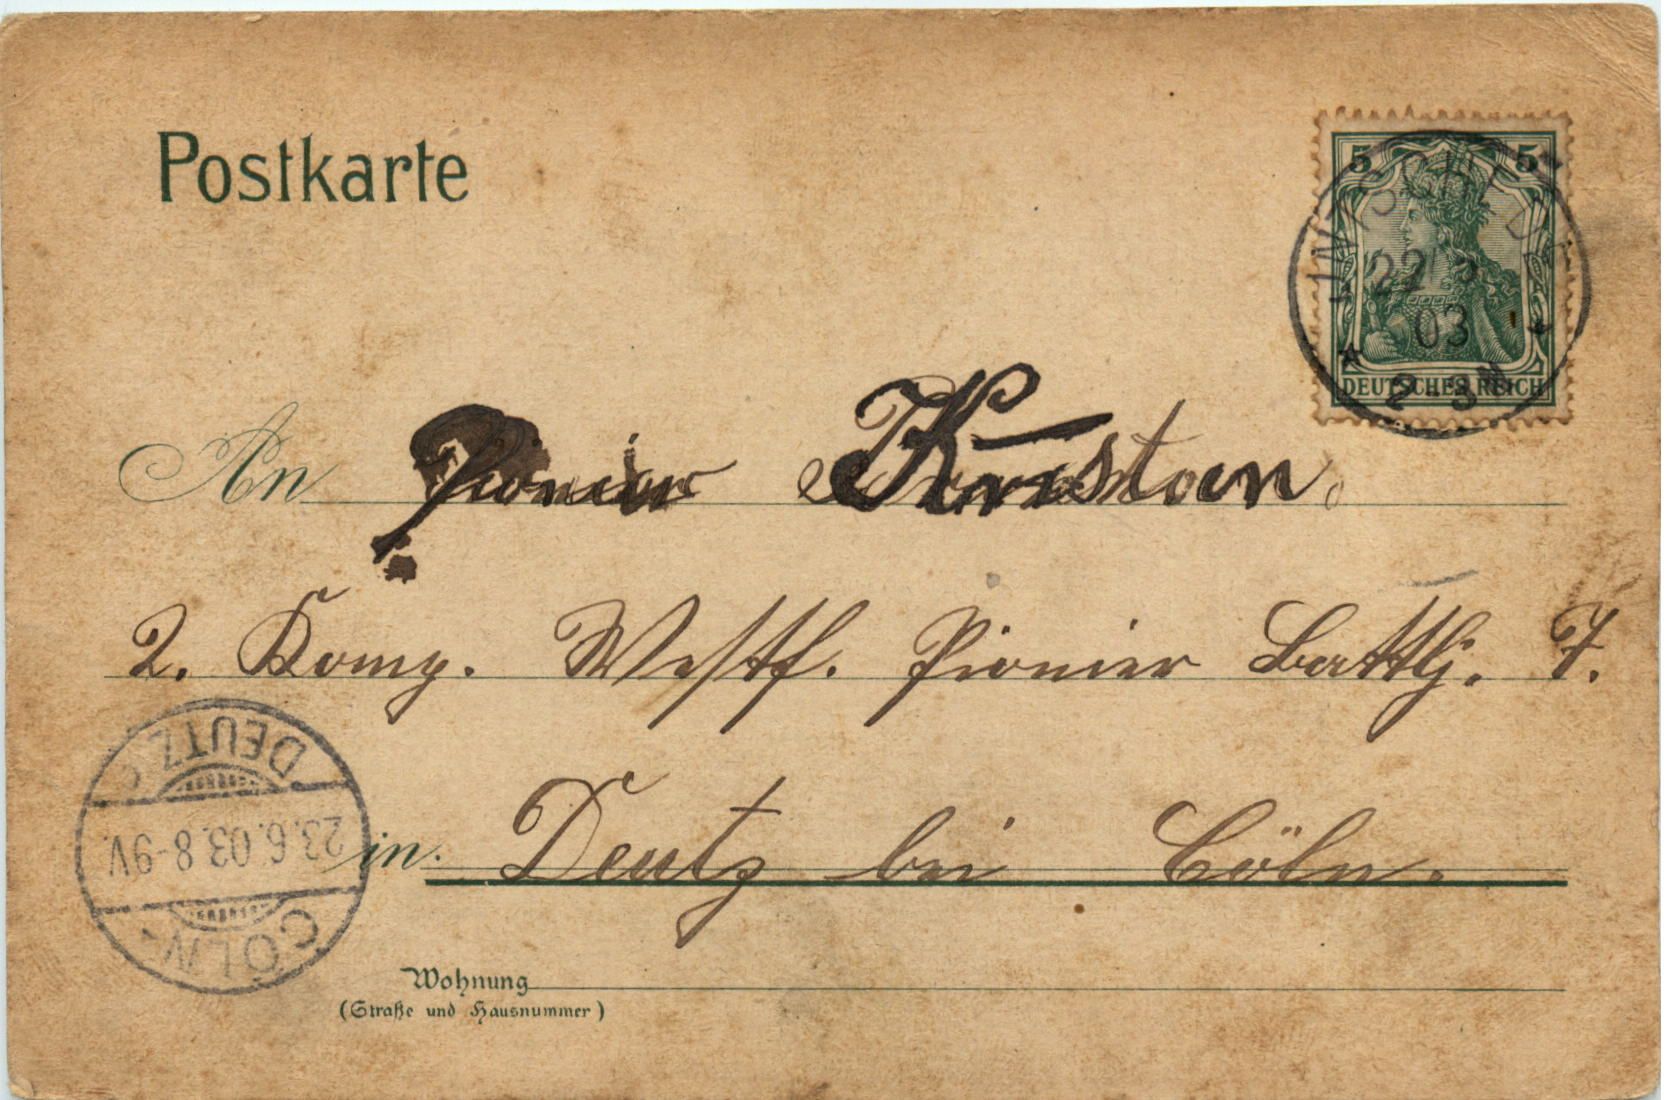 Postkarte
5 5
INTSCHEDE
22
03
2 3 N
DEUTSCHES REICH
An Pionier
2. Komp. Westf. Pionier Battlj. 7.
DEUTZ
23.6.03.8-9V.
CÖLN-
in Deutz bei Cöln.
Wohnung
(Straße und Hausnummer)